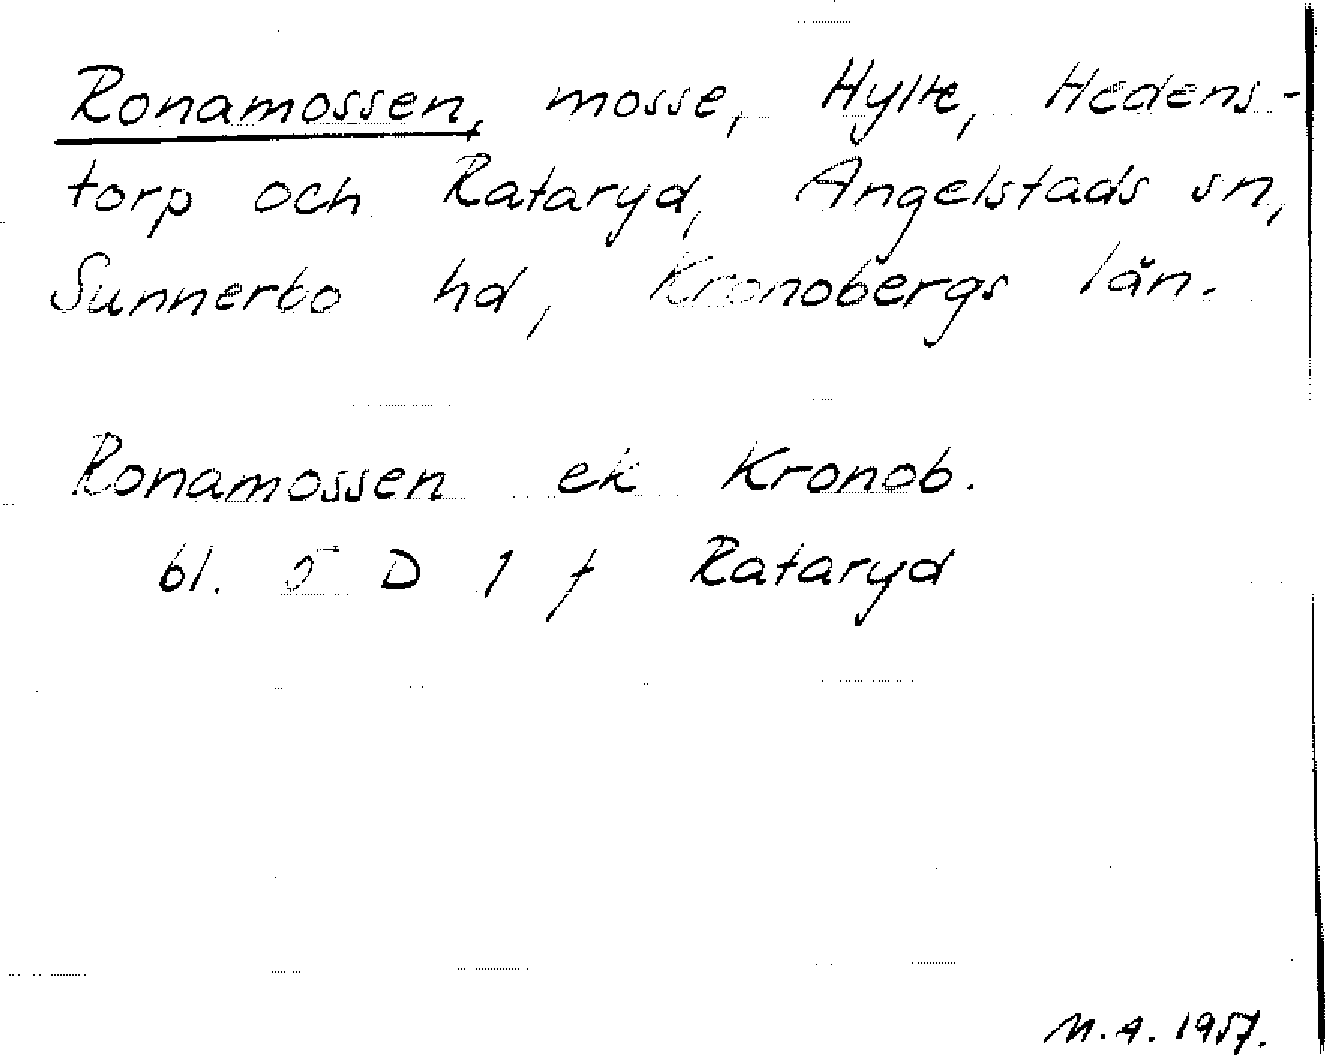 Ronamossen, mosse, Hylte, Hedens-
torp och Rataryd, Angelstads sn,
Sunnerbo hd, Kronobergs län.
Ronamossen ek Kronob.
bl. 5 D 1 f Rataryd
M.A. 1957.